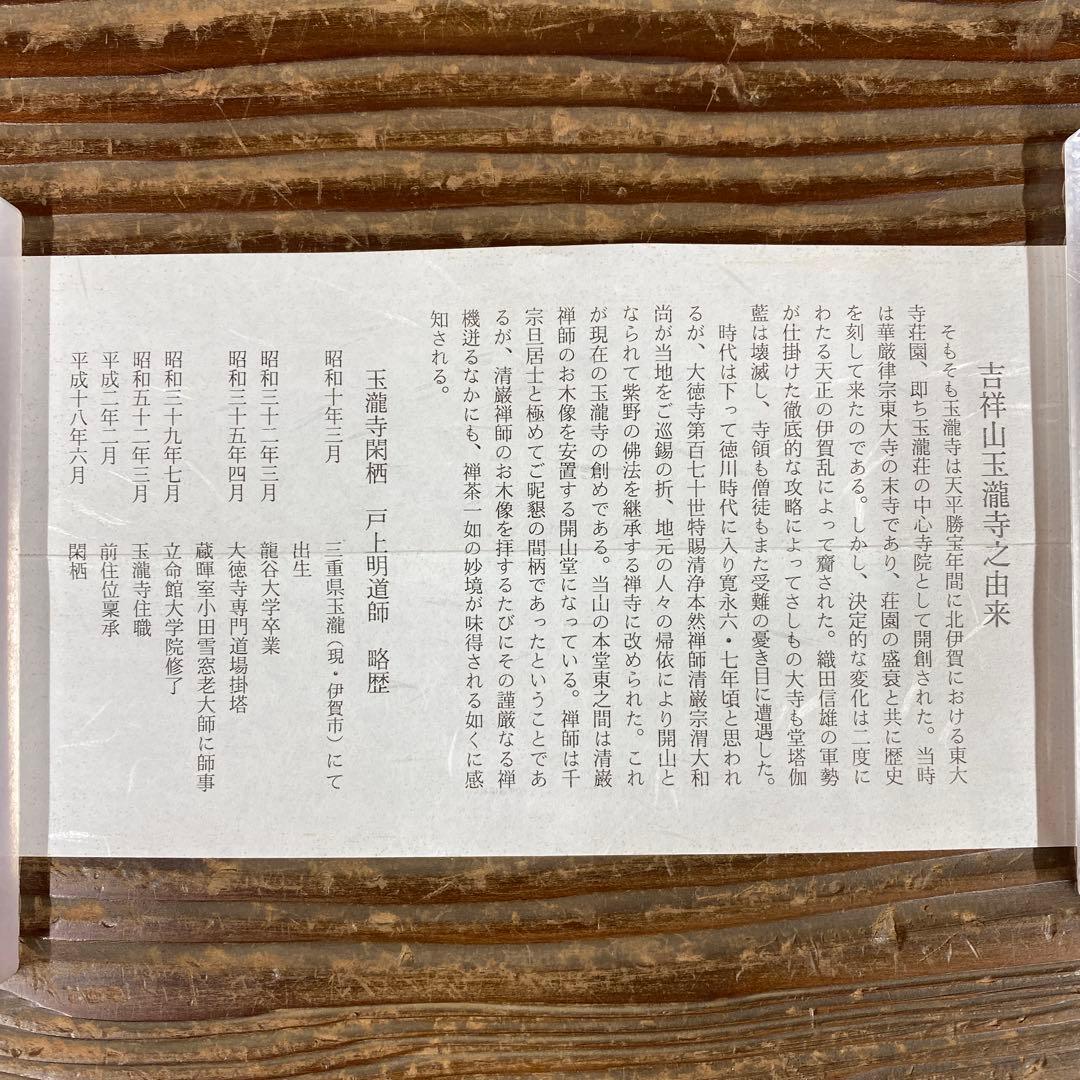 吉祥山玉瀧寺之由来
そもそも玉瀧寺は天平勝宝年間に北伊賀における東大
寺荘園、即ち玉瀧荘の中心寺院として開創された。当時
は華厳律宗東大寺の末寺であり、荘園の盛衰と共に歴史
を刻して来たのである。しかし、決定的な変化は二度に
わたる天正の伊賀乱によって齎された。織田信雄の軍勢
が仕掛けた徹底的な攻略によってさしもの大寺も堂塔伽
藍は壊滅し、寺領も僧徒もまた受難の憂き目に遭遇した。
時代は下って徳川時代に入り寛永六・七年頃と思われ
るが、大徳寺第百七十世特賜清浄本然禅師清巌宗渭大和
尚が当地をご巡錫の折、地元の人々の帰依により開山と
なられて紫野の佛法を継承する禅寺に改められた。これ
が現在の玉瀧寺の創めである。当山の本堂東之間は清巌
禅師のお木像を安置する開山堂になっている。禅師は千
宗旦居士と極めてご昵懇の間柄であったということであ
るが、清巌禅師のお木像を拝するたびにその謹厳なる禅
機迸るなかにも、禅茶一如の妙境が味得される如くに感
知される。
玉瀧寺閑栖 戸上明道師 略歴
昭和十年三月 三重県玉瀧(現・伊賀市)にて
出生
昭和三十二年三月 龍谷大学卒業
昭和三十五年四月 大徳寺専門道場掛塔
蔵暉室小田雪窓老大師に師事
昭和三十九年七月 立命館大学院修了
昭和五十二年三月 玉瀧寺住職
平成二年二月 前住位稟承
平成十八年六月 閑栖